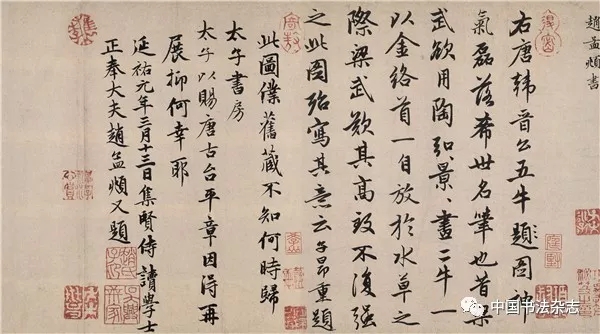 趙孟頫書
右唐韓晋公五牛題圖神
氣磊落希世名筆也昔梁
武欲用陶弘景畫二牛一
以金絡首一自放於水草之
際梁武歎其高致不復強
之此圖殆寫其意云子昂重題
此圖僕舊藏不知何時歸
太子書房
太子以賜唐古台平章因得再
展抑何幸耶
延祐元年三月十三日集賢侍讀學士
正奉大夫趙孟頫又題
中国书法杂志